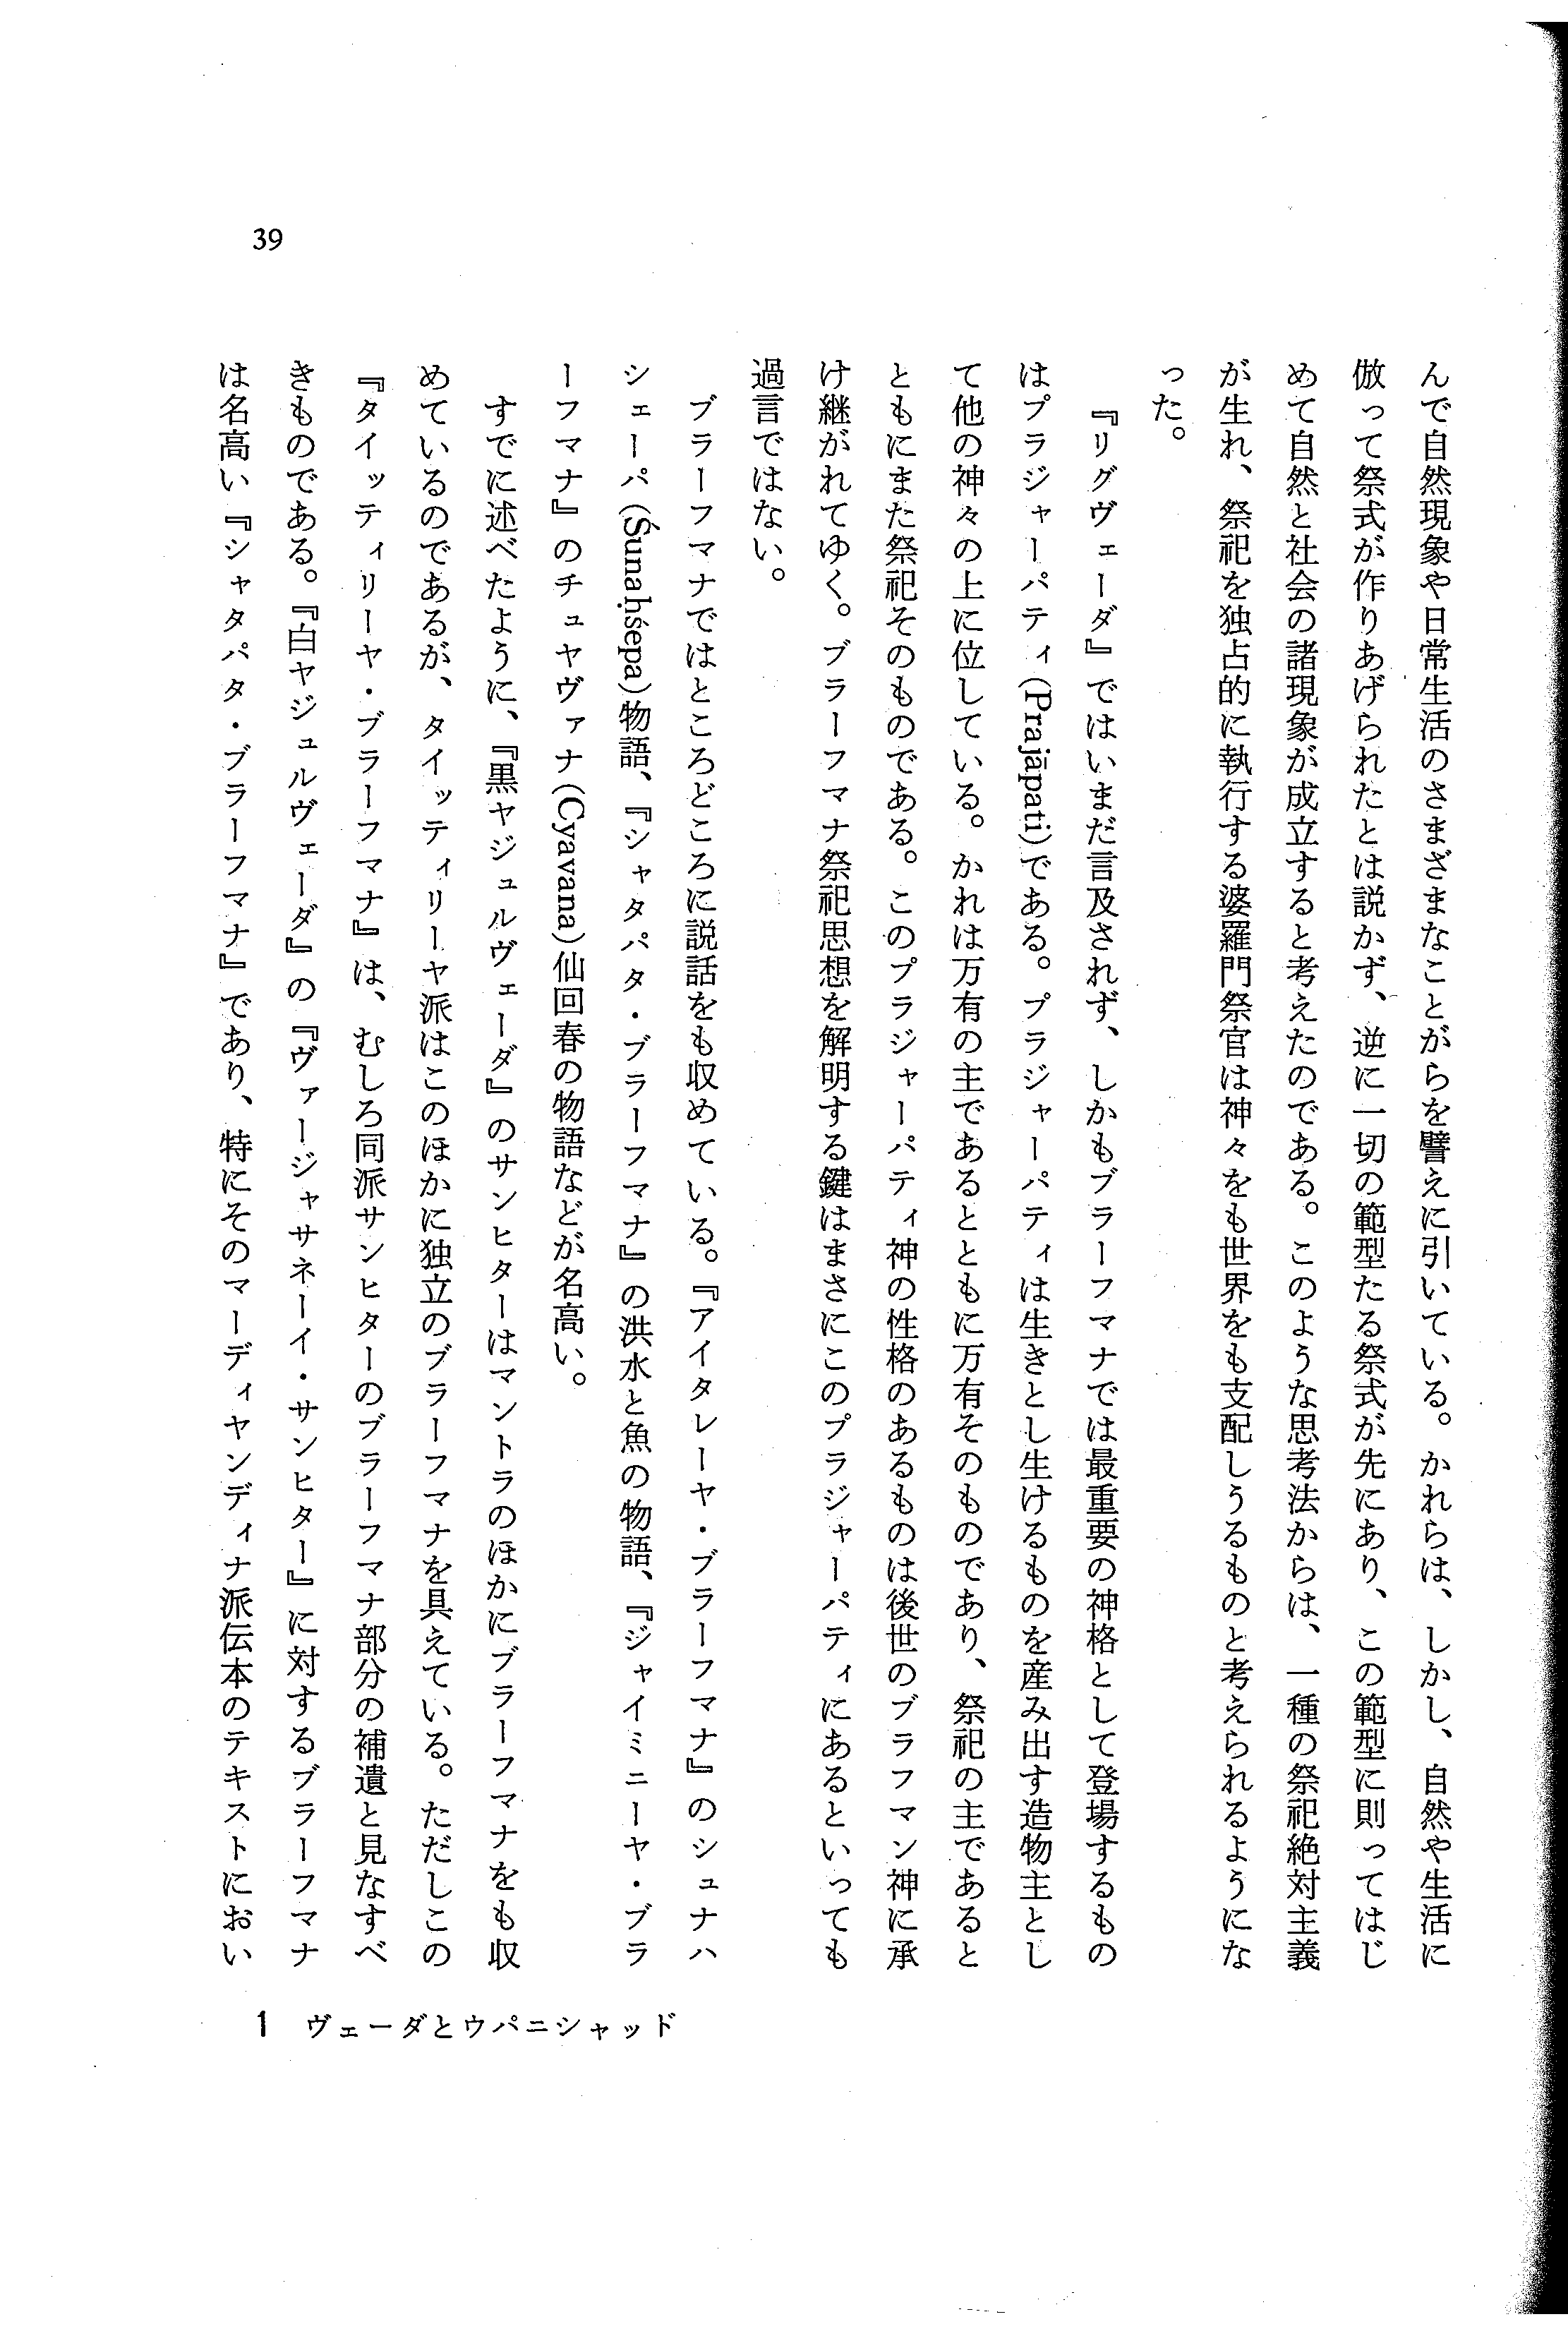 んで自然現象や日常生活のさまざまなことがらを譬えに引いている。かれらは、しかし、自然や生活に
倣って祭式が作りあげられたとは説かず、逆に一切の範型たる祭式が先にあり、この範型に則ってはじ
めて自然と社会の諸現象が成立すると考えたのである。このような思考法からは、一種の祭祀絶対主義
が生れ、祭祀を独占的に執行する婆羅門祭官は神々をも世界をも支配しうるものと考えられるようにな
った。
『リグヴェーダ』ではいまだ言及されず、しかもブラーフマナでは最重要の神格として登場するもの
はプラジャーパティ(Prajāpati)である。プラジャーパティは生きとし生けるものを産み出す造物主とし
て他の神々の上に位している。かれは万有の主であるとともに万有そのものであり、祭祀の主であると
ともにまた祭祀そのものである。このプラジャーパティ神の性格のあるものは後世のブラフマン神に承
け継がれてゆく。ブラーフマナ祭祀思想を解明する鍵はまさにこのプラジャーパティにあるといっても
過言ではない。
ブラーフマナではところどころに説話をも収めている。『アイタレーヤ・ブラーフマナ』のシュナハ
シェーパ(Śunaḥśepa)物語、『シャタパタ・ブラーフマナ』の洪水と魚の物語、『ジャイミニーヤ・ブラ
ーフマナ』のチュヤヴァナ(Cyavana)仙回春の物語などが名高い。
すでに述べたように、『黒ヤジュルヴェーダ』のサンヒターはマントラのほかにブラーフマナをも収
めているのであるが、タイッティリーヤ派はこのほかに独立のブラーフマナを具えている。ただしこの
『タイッティリーヤ・ブラーフマナ』は、むしろ同派サンヒターのブラーフマナ部分の補遺と見なすべ
きものである。『白ヤジュルヴェーダ』の『ヴァージャサネーイ・サンヒター』に対するブラーフマナ
は名高い『シャタパタ・ブラーフマナ』であり、特にそのマーディヤンディナ派伝本のテキストにおい
1 ヴェーダとウパニシャッド
39